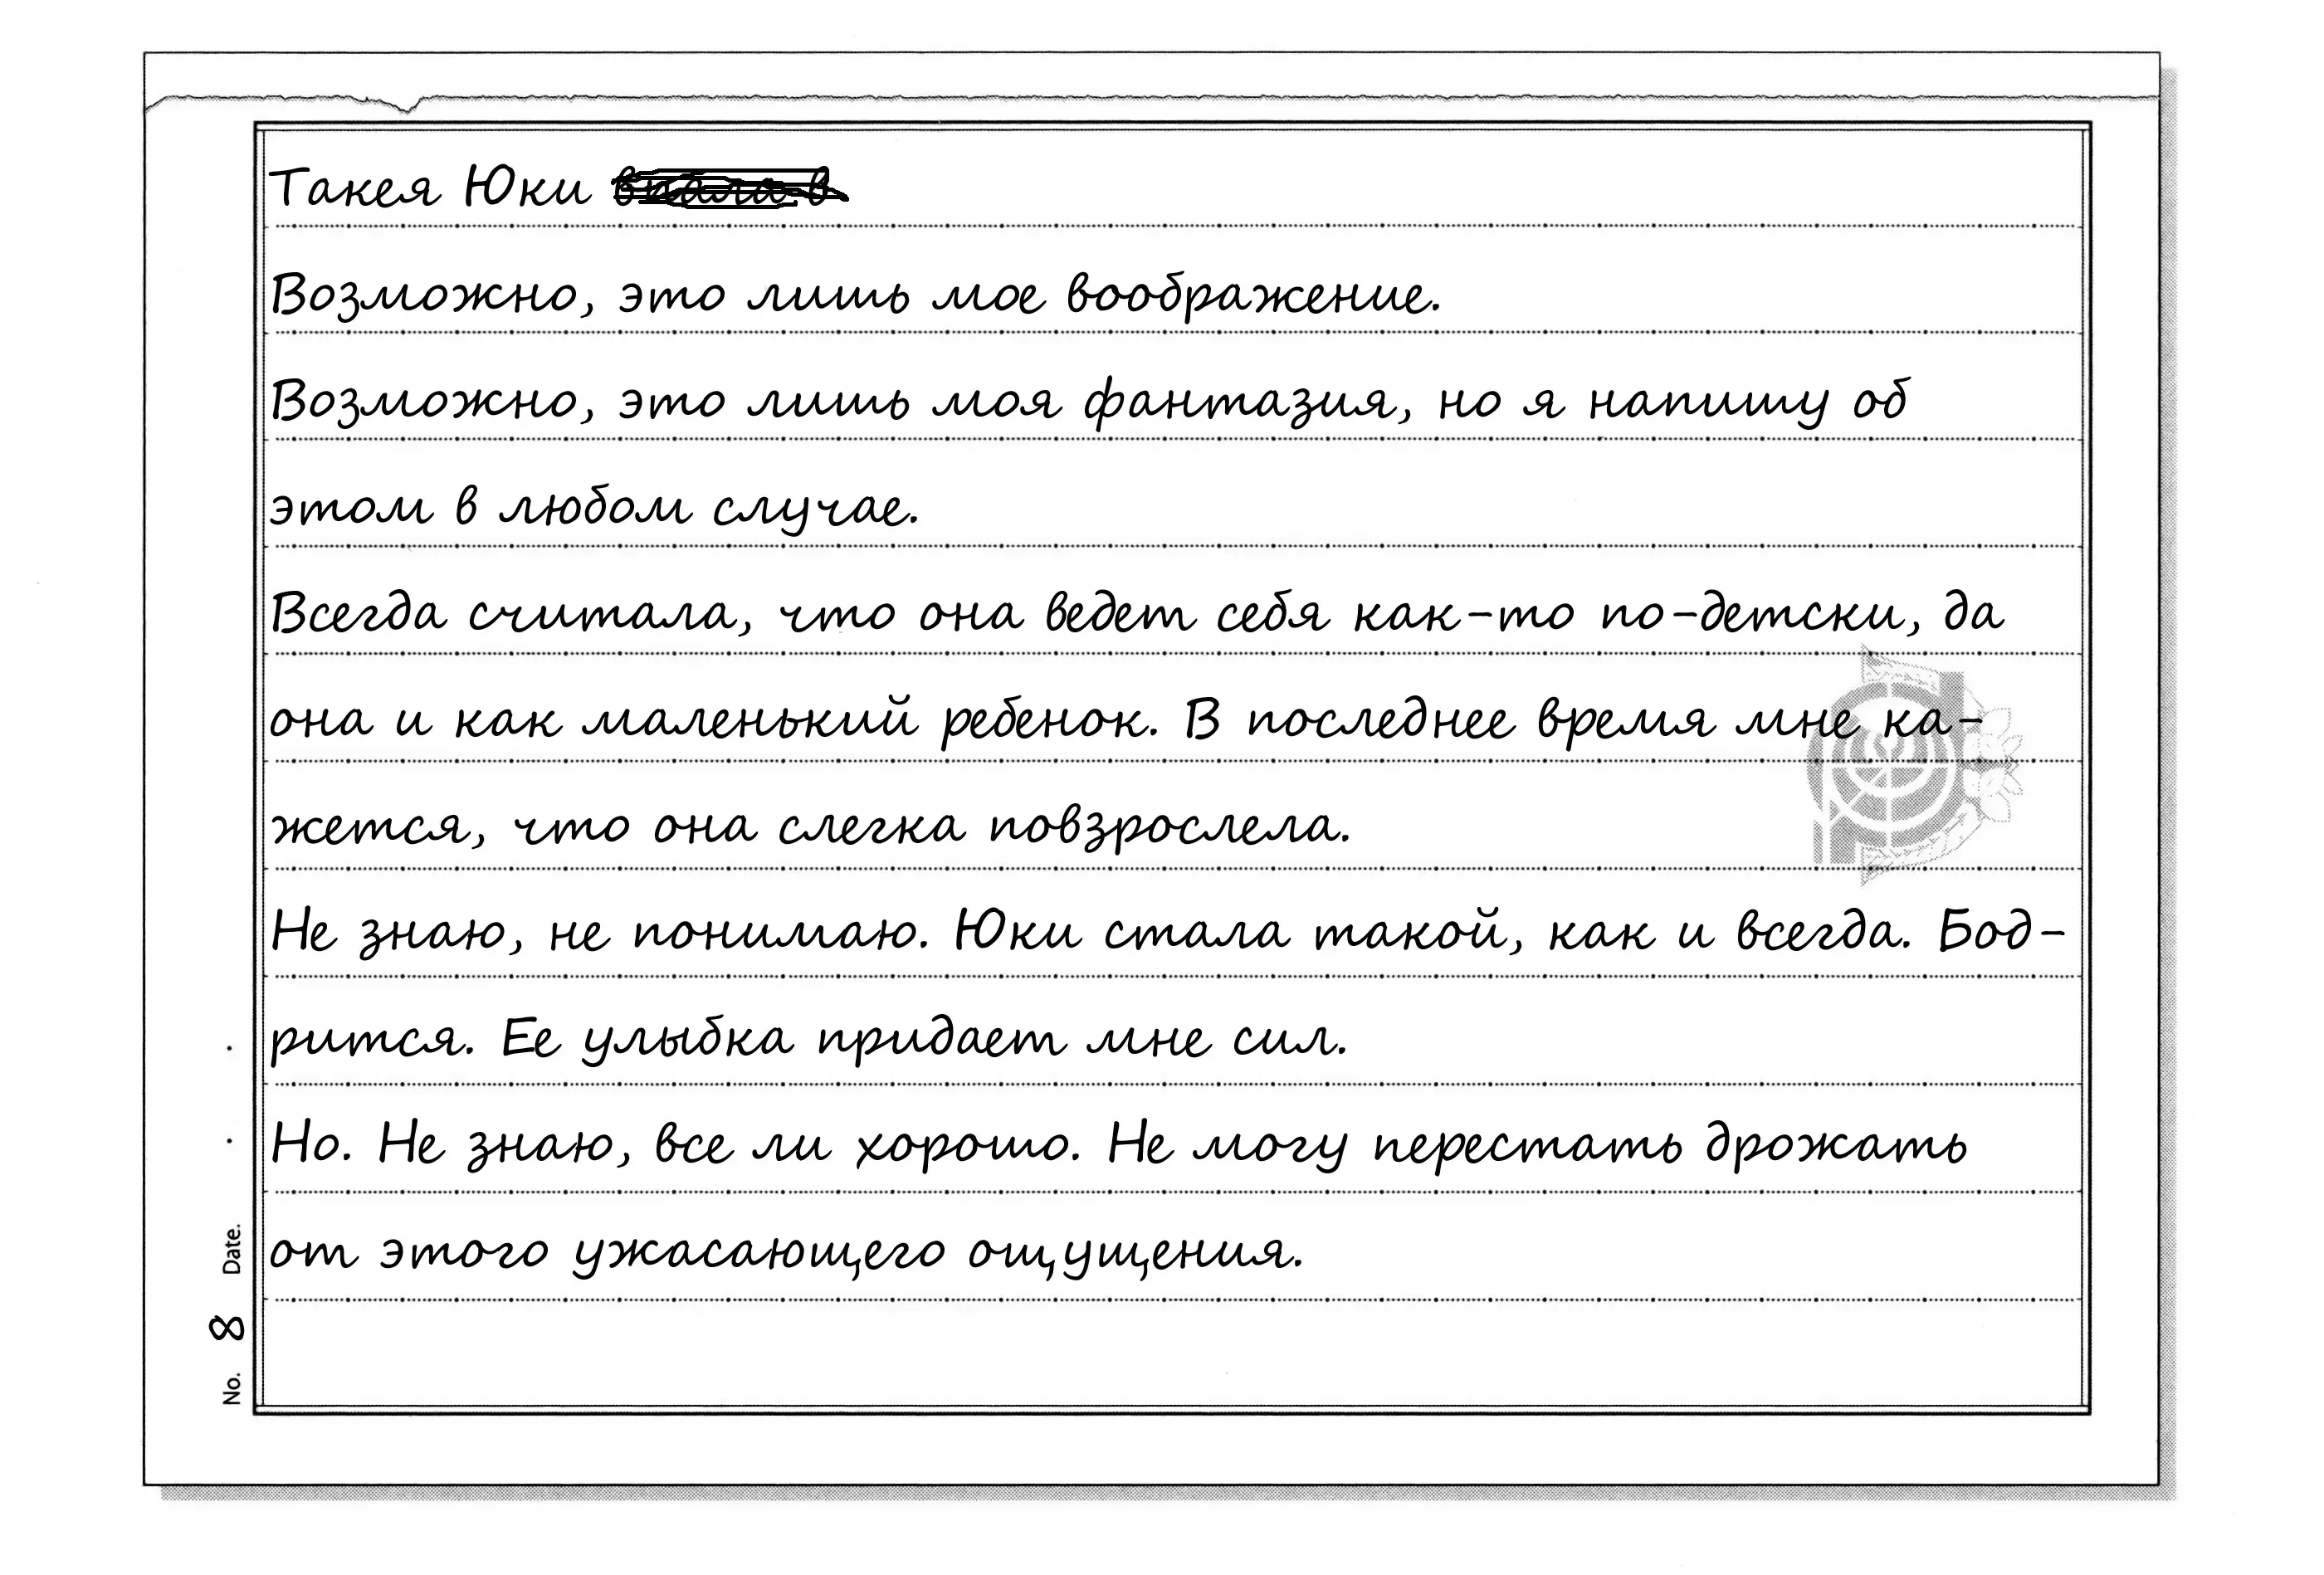 Такея Юки впала в
Возможно, это лишь мое воображение.
Возможно, это лишь моя фантазия, но я напишу об
этом в любом случае.
Всегда считала, что она ведет себя как-то по-детски, да
она и как маленький ребенок. В последнее время мне ка-
жется, что она слегка повзрослела.
Не знаю, не понимаю. Юки стала такой, как и всегда. Бод-
рится. Ее улыбка придает мне сил.
Но. Не знаю, все ли хорошо. Не могу перестать дрожать
от этого ужасающего ощущения.
No. 8 Date.